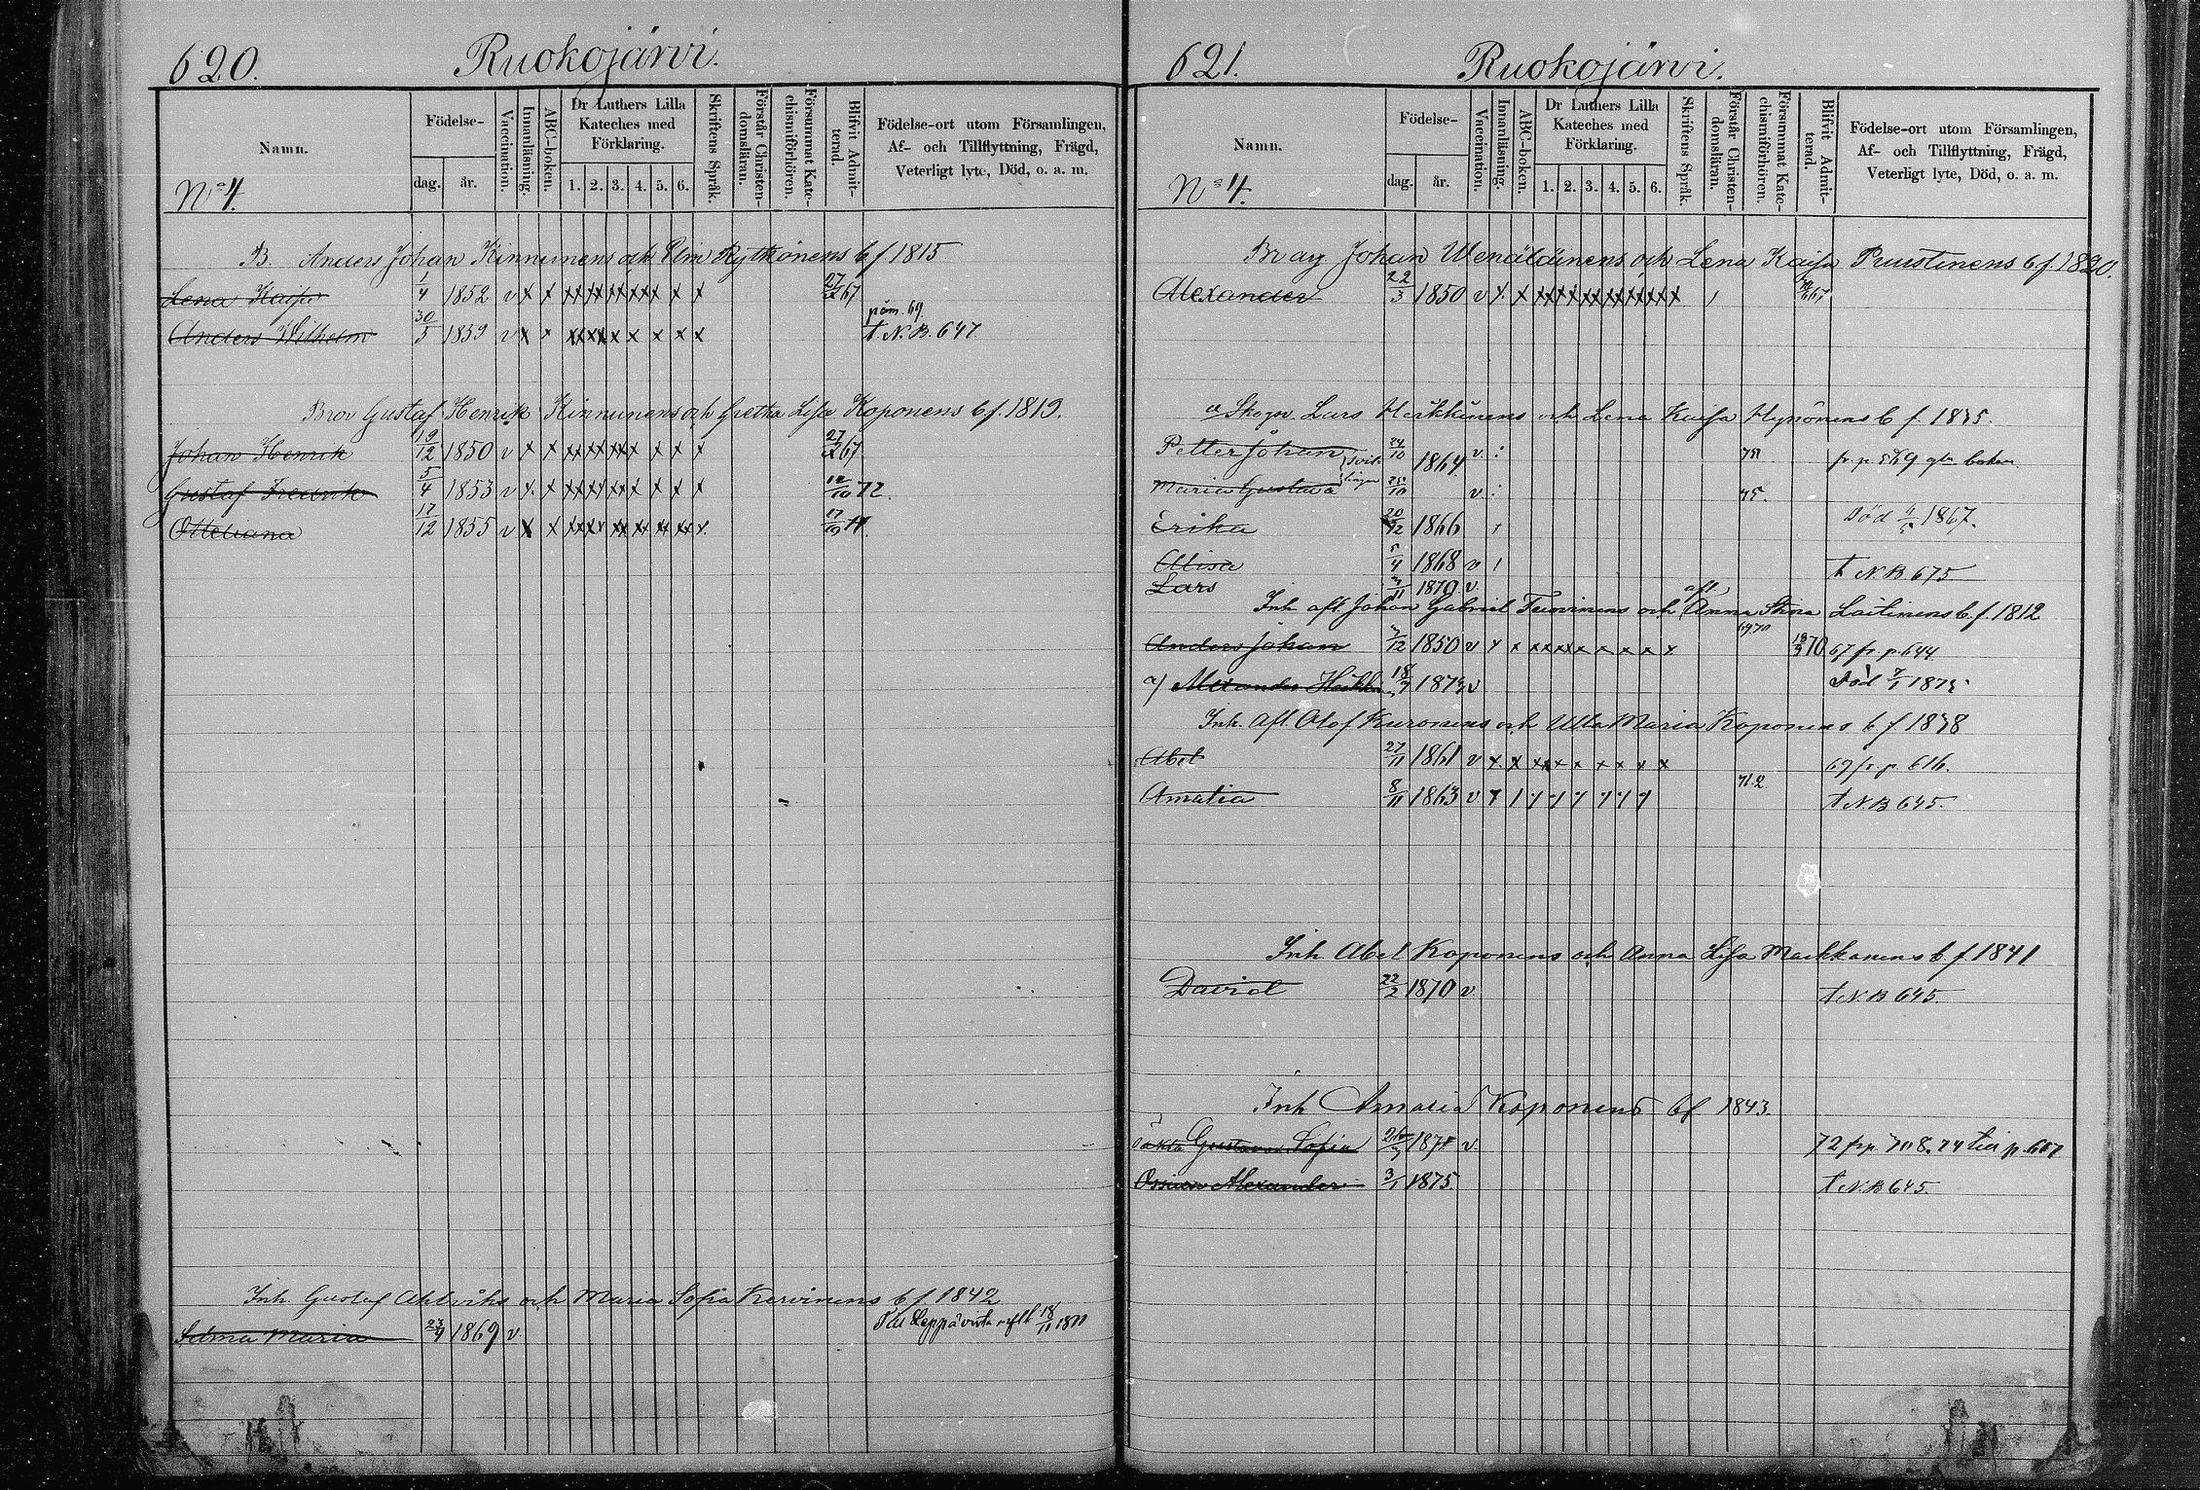 620. Ruokojärvi.
Namn.
No 4.
Födelse-
dag. år.
Vaccination.
Innanläsning.
ABC-boken.
Dr Luthers Lilla
Kateches med
Förklaring.
1. 2. 3. 4. 5. 6.
Skriftens Språk.
Förstår Christen-
domsläran.
Försummat Kate-
chismiförhören.
Blifvit Admit-
terad.
Födelse-ort utom Församlingen,
Af- och Tillflyttning, Frägd,
Veterligt lyte, Död, o. a. m.
B. Anders Johan Kinnunens och Elin Rytkönens b f 1815
Lena Kaisa 1/4 1852 v x x 67
Anders Wilhelm 30/5 1859 v x x t. N.B. 647
Gustaf Henrik Kinnunens och Gretha Lisa Koponens b f. 1819.
Johan Henrik 19/12 1850 v x x 67
Gustaf Fredrik 5/4 1853 v x x 12/10 72.
Ottiliana 17/12 1855 v x x
Inh. Gustaf Ahlviks och Maria Sofia Kervinens b f 1842
Selma Maria 23/9 1869 v. Till Leppävirta 18/11
621. Ruokojärvi.
Namn.
No 4.
Födelse-
dag. år.
Vaccination.
Innanläsning.
ABC-boken.
Dr Luthers Lilla
Kateches med
Förklaring.
1. 2. 3. 4. 5. 6.
Skriftens Språk.
Förstår Christen-
domsläran.
Försummat Kate-
chismiförhören.
Blifvit Admit-
terad.
Födelse-ort utom Församlingen,
Af- och Tillflyttning, Frägd,
Veterligt lyte, Död, o. a. m.
Johan Wenäläinens och Lena Kaisa Puustinens b f. 1820.
Alexander 22/3 1850 v x x 67
Lars Heikkinens och Lena Kaisa Hyvönens b f. 1835.
Petter Johan 24/10 1864 v. fr. p 569 gla boken
Maria Gustava 25/10 v. 75.
Erika 20/12 1866 Död 1867.
Alisa 5/4 1868 v t N.B 675
Lars 1870. v.
Inh. afl. Johan Gabriel Tuovinens och afl. Anna Stina Laitinens b. f. 1812
Anders Johan 1850 v x x 70 67 fr. p. 644
Alexander Heikki 18/7 v Död
Inh. Afl. Olof Kuronens och Ulla Maria Koponens b. f. 1838
Abel 27/11 1861 v x. x 69 fr. p. 616.
Amalia 8/11 1863 v 71.2 t N.B 645.
Inh. Abel Koponens och Anna Lisa Markkanens b f 1841
David 22/2 1870 v. t N.B 645.
Inh Amalia Koponens bf 1843.
oäkta Gustava Sofia 1871 v. 72 fr p. 708. 74 till p.
Alexander 3/1 1875. t N.B 645.